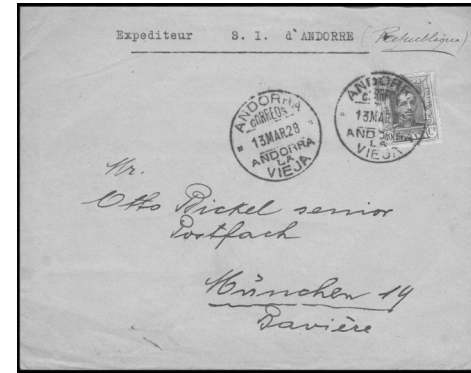 Expediteur S. I. d'ANDORRE (Republique)
ANDORRA
CORREOS
13 MAR 28
ANDORRA
LA
VIEJA
ANDORRA
13 MAR
ANDORRA
LA
VIEJA
Mr.
Otto Bickel senior
Postfach
München 19
Bavière